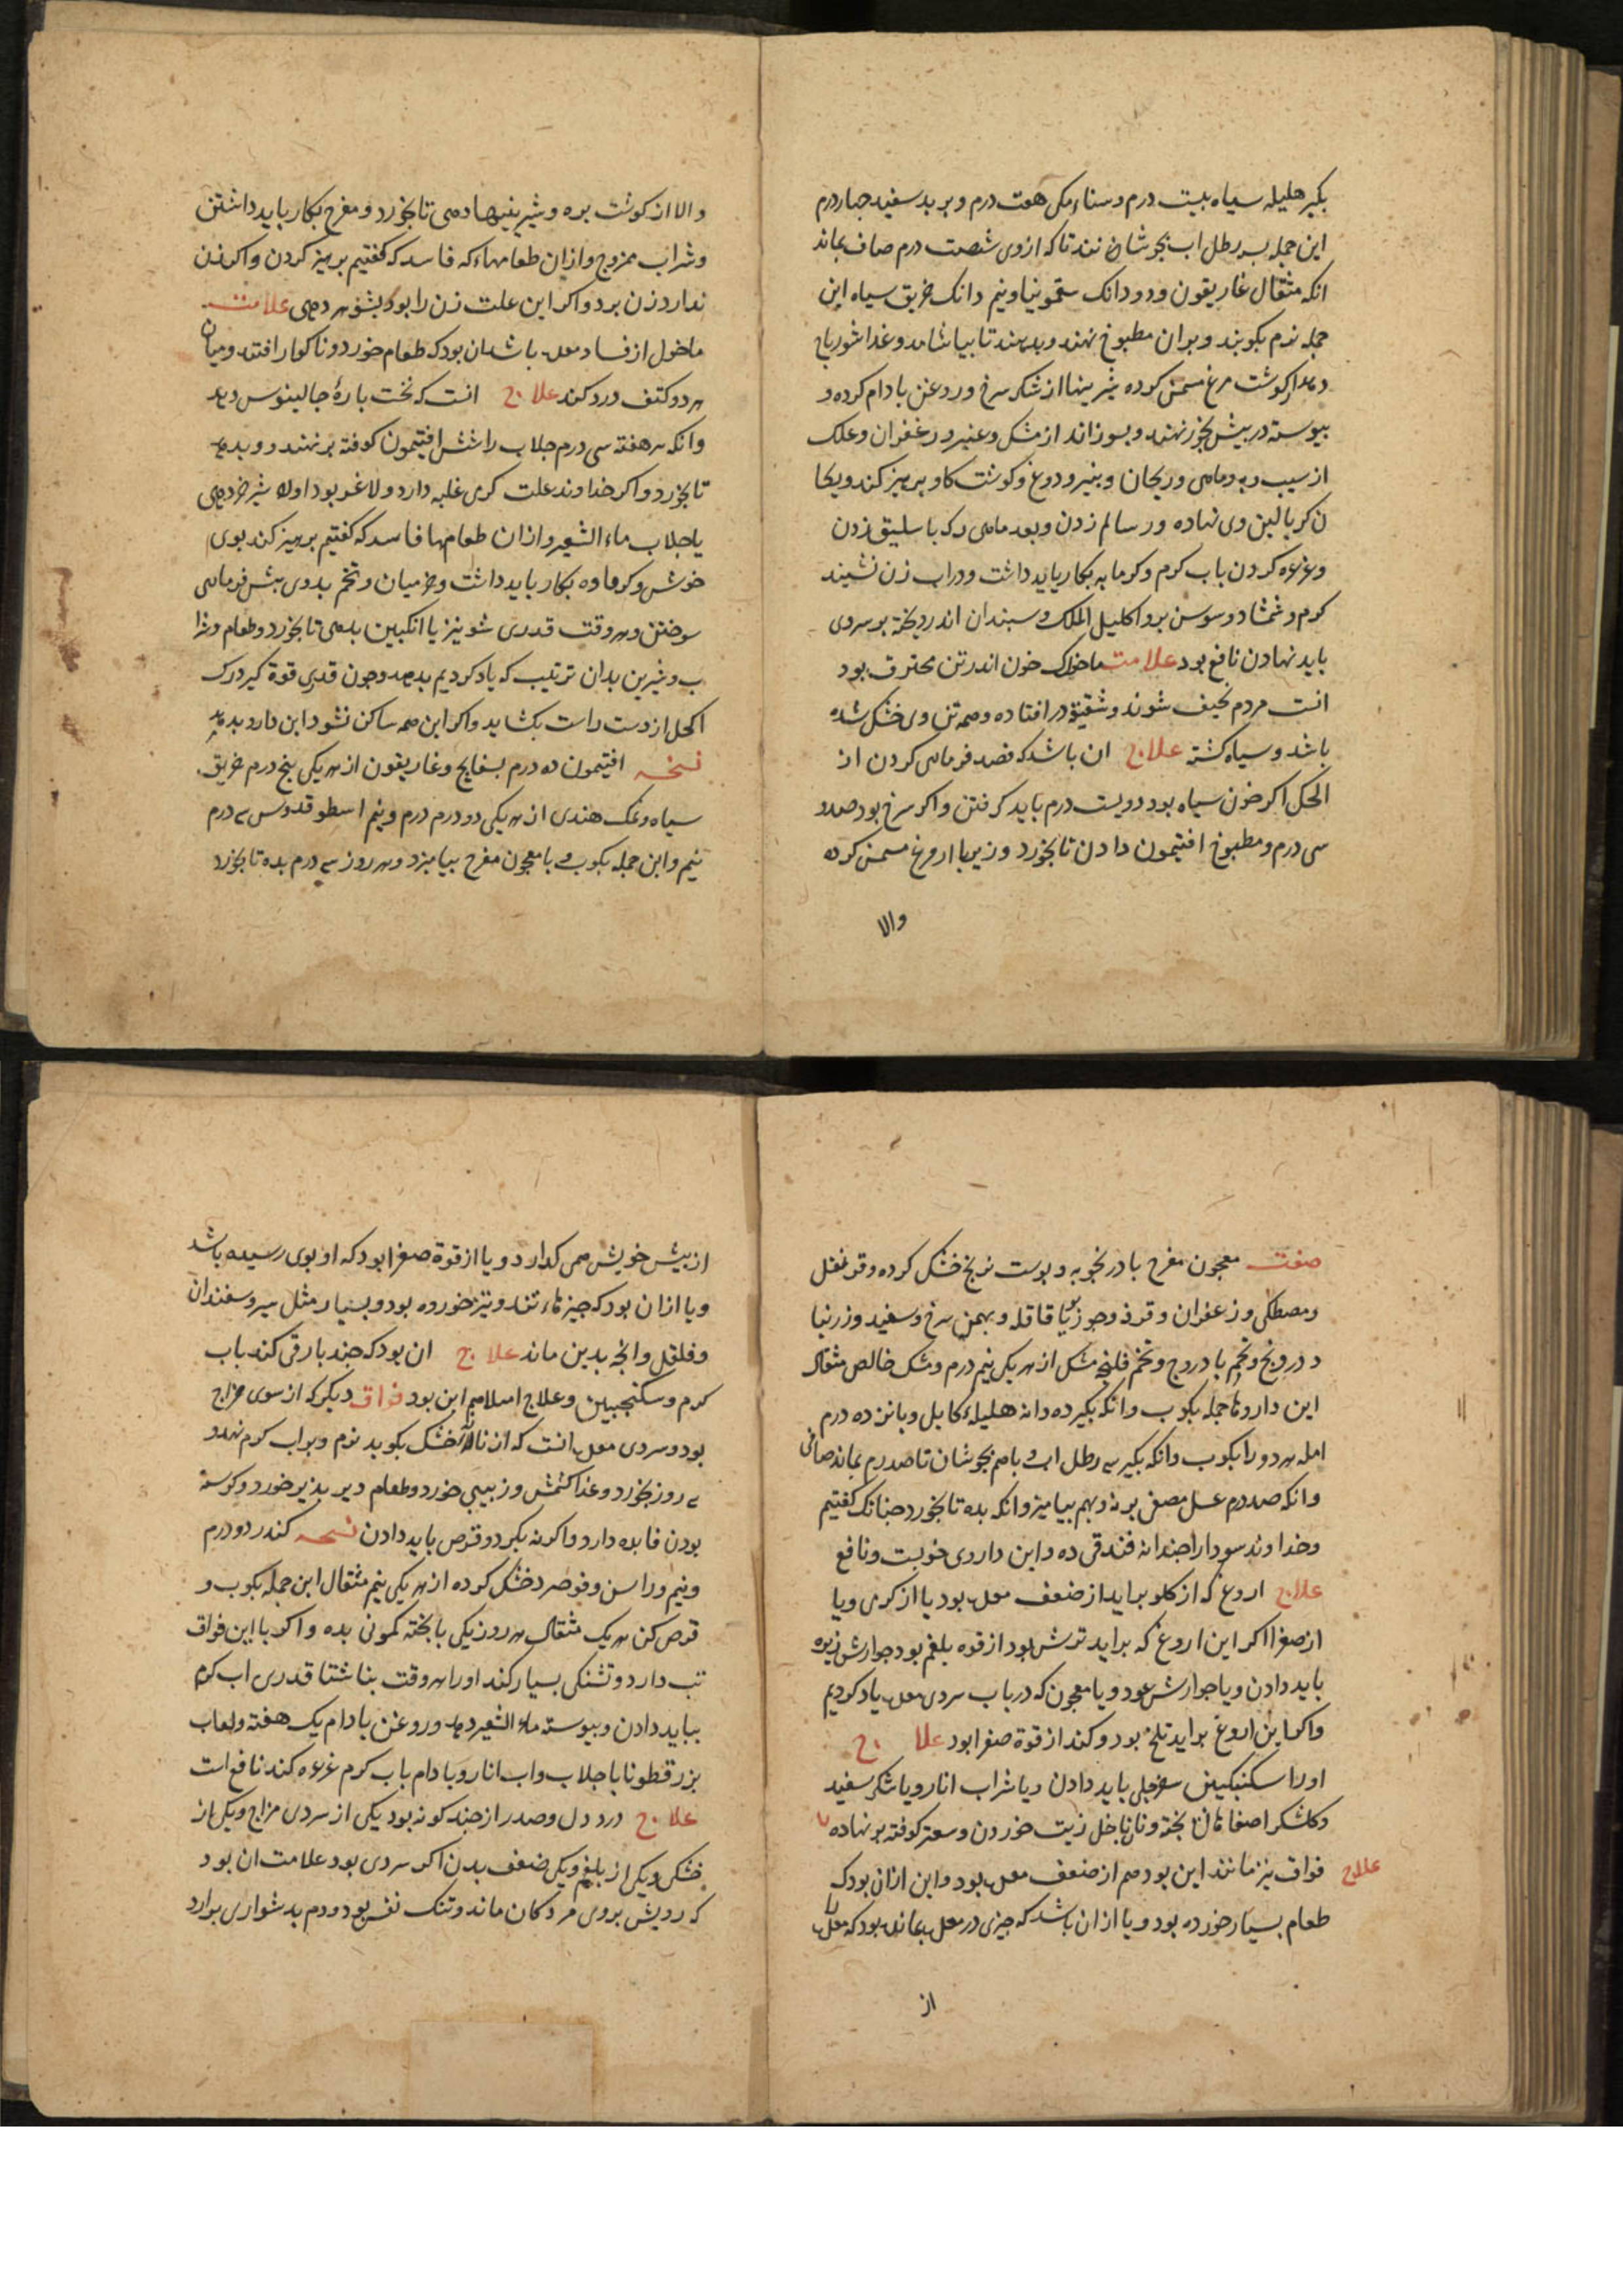 بکیر هلیله سیاه بیست درم و سناء مکی هفت درم و بربد سفید جهار درم
این جمله بسه رطل اب بجوشانند تا که ازوی شصت درم صاف بماند
انکه مثقال غاریقون و دو دانک سقمونیا و نیم دانک خربق سیاه این
جمله نرم بکوبند و بران مطبوخ نهند و بدهند تا بیاشامد و غذا شورباج
دهد از کوشت مرغ مسمن کرده شیرینها از شکر سرخ و روغن بادام کرده و
بیوسته در بیش بخور نهند و بسوزاند از مشک و عنبر و زعفران و علک
از سیب و به و ماهی و ریحان و بنیر و دوغ و کوشت کاو برهیز کند و بکا
ن کر بالین وی نهاده و رسالم زدن و بعد ماهی رک باسلیق زدن
و غرغره کردن باب کرم و کرمابه بکار باید داشت و دراب زن نشیند
کرم و شمشاد و سوسن برو اکلیل الملک و سبندان اندر بخته بر سر وی
باید نهادن نافع بود علامت ماخولک خون اندر تن محترق بود
انست مردم نحیف شوند و شقیق در افتاده و همه تن اوی خشک شده
باشد و سیاه کشته علاج ان باشد که فصد فرماهی کردن از
الحکل اکر خون سیاه بود دویست درم باید کرفتن و اکر سرخ بود صد و
سی درم و مطبوخ افتیمون دادن تا بخورد و زیربا از مرغ مسمن کرده
والا
والا از کوشت بره و شیرینیها دهی تا بخورد و مفرح بکار باید داشتن
و شراب ممزوج و ازان طعامهاء که فاسد که کفتیم برهیز کردن و اکر زن
ندارد زن برد و اکر این علت زن را بود بشوهر دهی علامت
ماخول از فساد معده باشد ان بود که طعام خورد و ناکوار افتد و میان
هر دو کتف درد کند علاج انست که نخست یارهٔ جالینوس دهد
وانکه هر هفته سی درم جلاب را شش افتیمون کوفته بر نهند و بدهد
تا بخورد و اکر خداوند علت کرمی غلبه دارد و لاغر بود اولا شیر خر دهی
یا جلاب ماء الشعیر و ازان طعامها فاسد که کفتیم برهیز کند بوی
خوش و کرماوه بکار باید داشت و خرمیان و تخم بدوی بیش فرماهی
سوختن و هر وقت قدری شونیز با انکبین بدهی تا بخورد و طعام و شرا
ب و شیرین بدان ترتیب که یاد کردیم بدهد و جون قدری قوة کیرد رک
اکحل از دست راست بکشاید و اکر این همه ساکن نشود این دارو بدهد
نسخه افتیمون ده درم بسفایج و غاریقون از هر یکی بنج درم خربق
سیاه و نمک هندی از هر یکی دو درم درم و نیم اسطوقدوس سه درم
نیم و این جمله بکوب و با معجون مفرح بیامیزد و هر روز سه درم بده تا بخورد
صفت معجون مفرح بادرنجوبه و بوست ترنج خشک کرده و قرنفل
و مصطکی و زعفران و قرفه و جوز بویا قاقله و بهمن سرخ و سفید و زرنبا
د درونج و تخم بادروج و تخم فلنجه مشک از هر یکی نیم درم و مشک خالص مثقال
این داروها جمله بکوب وانکه بکیر ده دانه هلیلهٔ کابل و بانزده درم
امله هر دو را بکوب وانکه بکیر سه رطل اب و باهم بجوشان تا صد درم بماند صافی
وانکه صد درم عسل مصفی برنه و بهم بیامیز وانکه بده تا بخورد جنانک کفتیم
و خداوند سودا را جندانه فندقی ده و این داروی خوبست و نافع
علاج اروغ که از کلو براید از ضعف معده بود یا از کرمی و یا
از صفرا اکر این اروغ که براید ترش بود از قوه بلغم بود جوارش زیره
باید دادن و یا جوارش عود و یا معجون که در باب سردی معده یاد کردیم
و اکر این اروغ براید تلخ بود و کند از قوة صفرا بود علاج
او را سکنبکین سفرجلی باید دادن و یا شراب انار و یا شکر سفید
و کلشکر اصفاهانی بخته و نان با خل زیت خوردن و سعتر کوفته بر نهاده
علاج فواق نیز مانند این بود هم از ضعف معده بود و این ازان بود که
طعام بسیار خورده بود و یا ازان باشد که جیزی در معده بماند بود که معده
از
از بیش خویش همی کدارد و یا از قوة صفرا بود که او بوی رسیده باشد
و یا ازان بود که جیزهاء تند و تیز خورده بود و بسیار مثل سیر و سفندان
و فلفل وانجه بدین ماند علاج ان بود که جند بار قی کند باب
کرم و سکنجبین و علاج اسلاهیم این بود فواق دیکر که از سوی مزاج
بود و سردی معده انست که از نالاآ خشک بکوبد نرم و بر اب کرم نهد و
سه روز بخورد و غذا کشمش و زبیبی خورد و طعام دیر بذیر خورد و کرسنه
بودن فایده دارد و اکر نه بکیرد و قرص باید دادن نسخه کندر دو درم
و نیم و راسن و فوصرد خشک کرده از هر یکی نیم مثقال این جمله بکوب و
قرص کن هر یک مثقال هر روز یکی با بخته کمونی بده و اکر با این فواق
تب دارد و تشنکی بسیار کند او را هر وقت بناشتا قدری اب کرم
بباید دادن و بیوسته ماء الشعیر دهد و روغن بادام یک هفته و لعاب
بزر قطونا با جلاب و اب انار و بادام باب کرم غرغره کند نافع است
علاج درد دل و صدر از جند کونه بود یکی از سردی مزاج و یکی از
خشکی و یکی از بلغم و یکی ضعف بدن اکر سردی بود علامت ان بود
که رویش بروی مردکان ماند و تنک نفس بود و دم بدشواری برارد